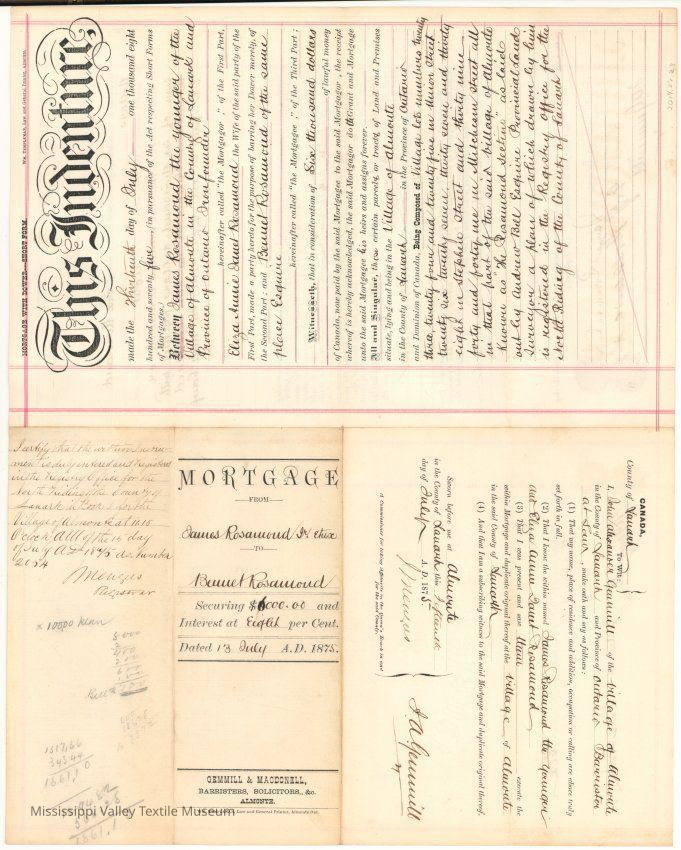 MORTGAGE WITH DOWER—SHORT FORM.
This Indenture,
made the Thirteenth day of July one thousand eight
hundred and seventy five (in pursuance of the Act respecting Short Forms
of Mortgages)
Between James Rosamond the younger of the
Village of Almonte in the County of Lanark and
Province of Ontario Ironfounder
hereinafter called "the Mortgagor;" of the First Part,
Rosamond the Wife of the said party of the
First Part, made a party hereto for the purpose of barring her dower merely, of
the Second Part; and Bennet Rosamond of the same
place Esquire
hereinafter called "the Mortgagee;" of the Third Part;
Witnesseth, that in consideration of Six thousand dollars
of lawful money
of Canada, now paid by the said Mortgagee to the said Mortgagor, the receipt
whereof is hereby acknowledged, the said Mortgagor doth Grant and Mortgage
unto the said Mortgagee his heirs and assigns forever
All and Singular, those certain parcels or tracts of Land and Premises
situate, lying and being in the Village of Almonte
in the County of Lanark in the Province of Ontario
and Dominion of Canada, Being Composed of Village lots numbers twenty
three twenty four and twenty five in Union Street
twenty six twenty seven thirty seven and thirty
eight in Stephen Street and thirty nine
forty and forty one in Mitcheson Street all
in that part of the said Village of Almonte
known as "the Rosamond Section" as laid
out by Andrew Bell Esquire Provincial Land
Surveyor a plan of which drawn by him
is registered in the Registry Office for the
North Riding of the County of Lanark
I certify that the within
is duly entered and Registered
in the Registry Office for the
North Riding of the County of
Lanark in Book for the
Village of Almonte at 11.15
O'clock A.M. of the 15 day
of July A.D. 1875 as Number
2054
Menzies
Registrar
1317,66
MORTGAGE
—FROM—
James Rosamond Jr et ux
—TO—
Bennet Rosamond
Securing $6000.00 and
Interest at Eight per Cent.
Dated 13 July A.D. 1875.
GEMMILL & MACDONELL,
BARRISTERS, SOLICITORS, &c.
ALMONTE.
CANADA,
County of Lanark
To Wit:
I, Gemmill of the Village of Almonte
in the County of Lanark and Province of Ontario Barrister
at Law, make oath and say as follows:
(1) That my name, place of residence and addition, occupation or calling are above truly
set forth in full.
(2) That I know the within named James Rosamond the younger
and Rosamond
(3) That I was present and saw them execute the
within Mortgage and duplicate original thereof at the Village of Almonte
in the said County of Lanark
(4) And that I am a subscribing witness to the said Mortgage and duplicate original thereof.
Sworn before me at Almonte
in the County of Lanark this fifteenth
day of July A.D. 1875
Menzies
Gemmill
Mississippi Valley Textile Museum